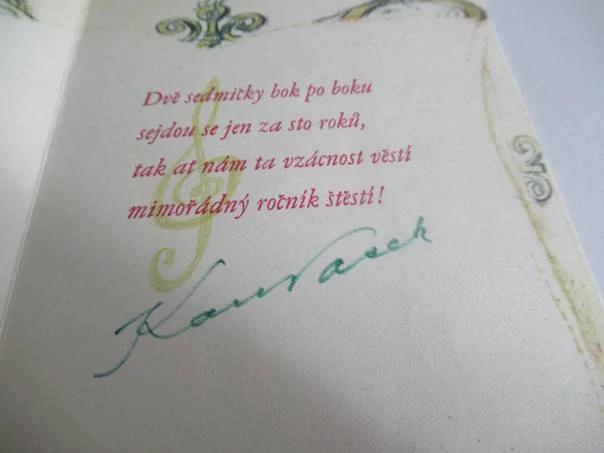 Dvě sedmičky bok po boku
sejdou se jen za sto roků,
tak ať nám ta vzácnost věstí
mimořádný ročník štěstí!